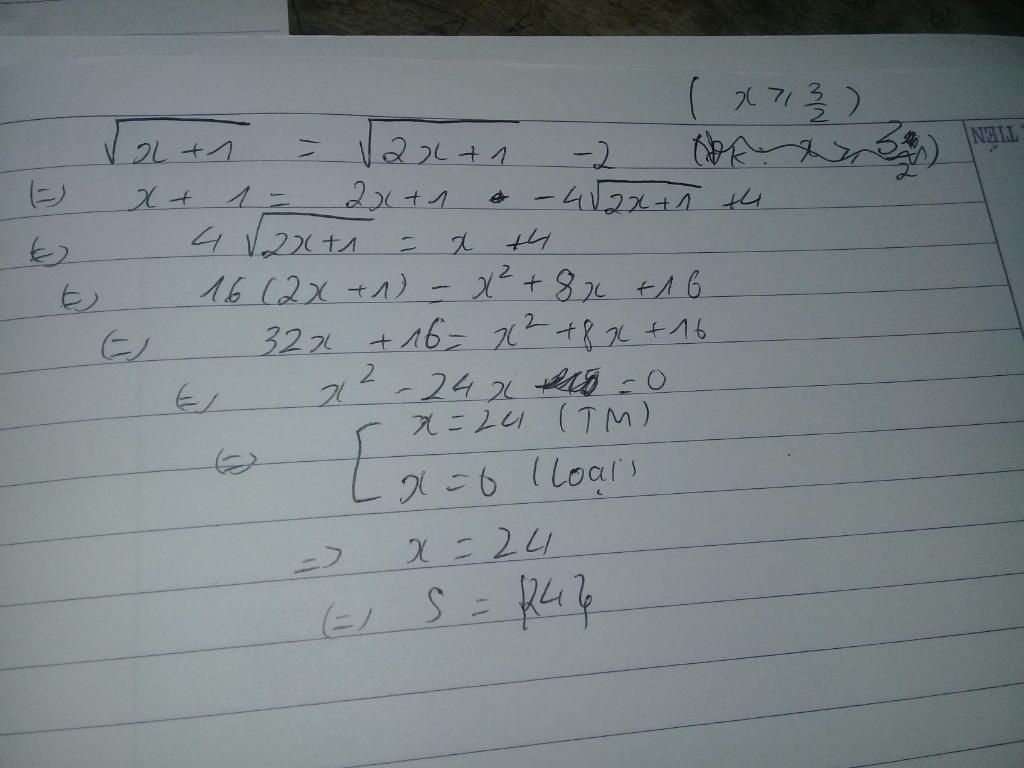 ( x ⩾ 3/2 )
√(x+1) = √(2x+1) -2
(=) x + 1 = 2x+1 -4√(2x+1) +4
(=) 4√(2x+1) = x +4
(=) 16(2x+1) = x² + 8x +16
(=) 32x +16 = x² +8x +16
(=) x² - 24x = 0
(=) [ x = 24 (TM)
x = 0 (Loại)
=> x = 24
(=) S = {24}
TIEN